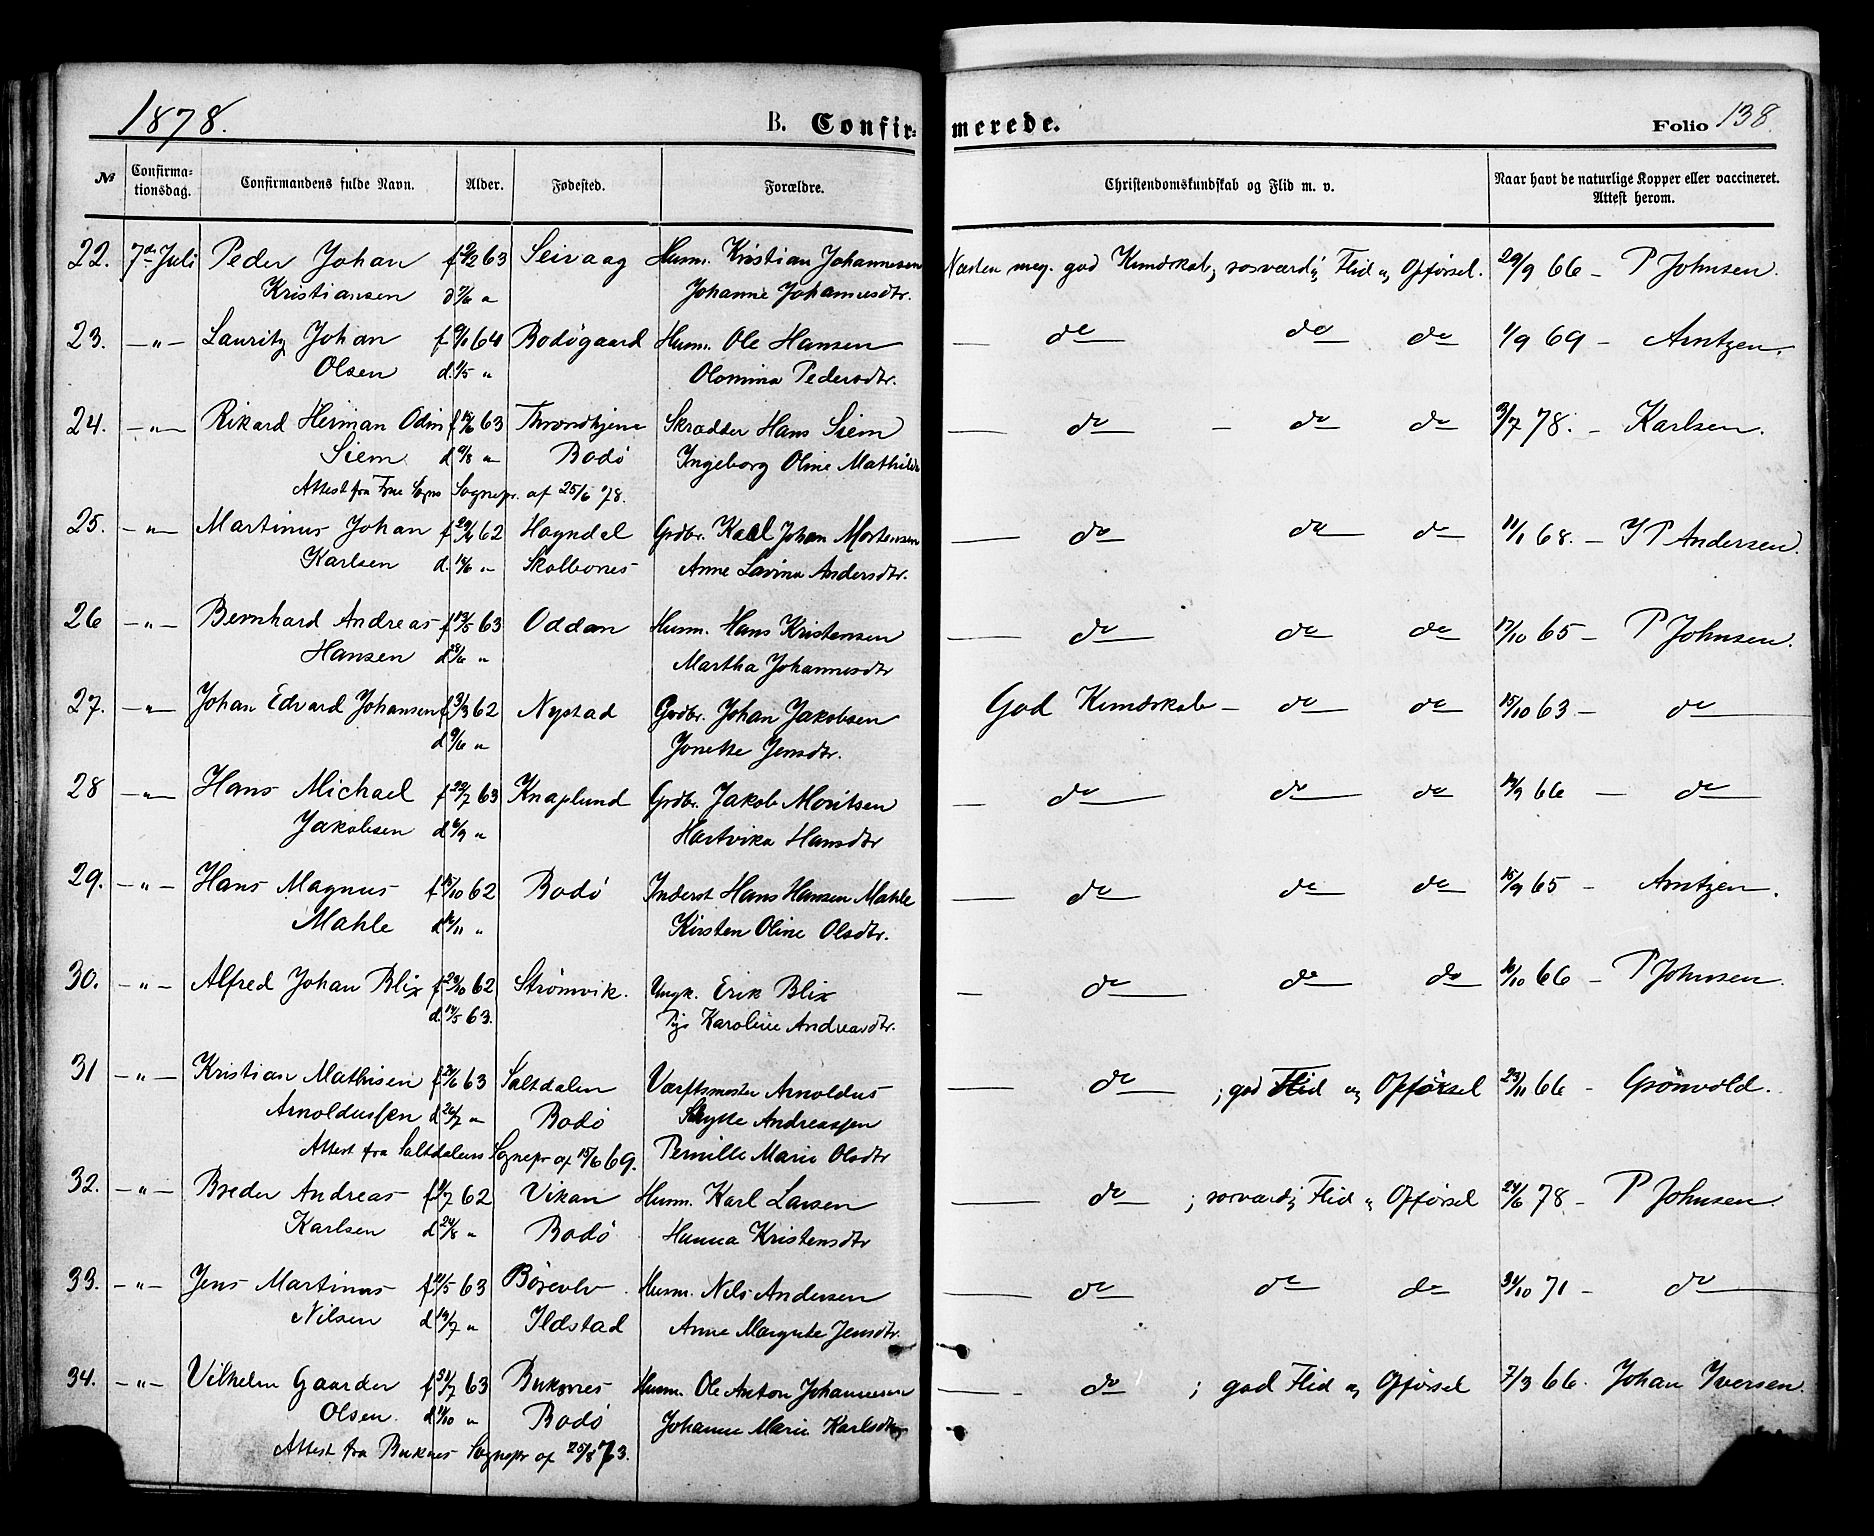 1878. B. Confirmerede. Folio 138.
№ Confirmationsdag. Confirmandens fulde Navn. Alder. Fødested. Forældre. Christendomskundskab og Flid m. v. Naar havt de naturlige Kopper eller vaccineret. Attest herom.
22. 7de Juli Peder Johan f 63 Seivaag Husm. Kristian Johannesen Næsten meg. god Kundskab, rosværdig Flid og Opførsel. 29/9 66 – P Johnsen.
Kristiansen d " Johanne Johannesdtr.
23. – " – Lauritz Johan f 64 Bodøgaard Husm. Ole Hansen — do — do do 1/9 69 – Arntzen.
Olsen d. 1/5 " Olomina Pedersdtr.
24. – " – Rikard Herman Odin f 63 Throndhjem Skrædder Hans Siem — do — do do 3/7 78. – Karlsen.
Siem d 9/8 " Bodø Ingeborg Oline Mathilde
Attest fra Frue Sogns Sognepr. af 25/6 78.
25. – " – Martinus Johan f 62 Hogndal Grdbr. Karl Johan Mortensen — do do do 11/1 68. – I P Andersen.
Karlsen d. 15/6 " Skalbones Anne Lavina Andersdtr.
26 – " – Bernhard Andreas f 13/5 63 Oddan Husm. Hans Kristensen — do do do 17/10 65 – P Johnsen.
Hansen d 28/6 " Martha Johannesdtr
27. – " – Johan Edvard Johansen f 3/3 62 Nystad Grdbr. Johan Jakobsen God Kundskab – do do 15/10 63 – do
d 9/6 " Jonette Jensdtr.
28 – " – Hans Michael f 29/7 63 Knaplund Grdbr. Jakob Moritsen — do do do 14/9 66 — do
Jakobsen d 6/9 " Hartvika Hansdtr
29. – " – Hans Magnus f 15/10 62 Bodø Inderst Hans Hansen Mahle — do do do 15/9 65 – Arntzen.
Mahle d 16/11 " Kirsten Oline Olsdtr.
30. – " – Alfred Johan Blix f 29/10 62 Strømvik. Ungk. Erik Blix — do do do 16/10 66 – P Johnsen.
d. 14/5 63. Pige Karoline Andreasdtr.
31 – " – Kristian Mathisen f 24/6 63 Saltdalen Værftsmester Arnoldus — do ; god Flid og Opførsel 23/11 66 – Grönvold.
Arnoldussen d 26/7 " Bodø Skytte Andreassen
Attest fra Saltdalens Sognepr af 15/6 69. Pernille Marie Olsdtr
32. – " – Breder Andreas f 62 Vikan Husm. Karl Larsen — do ; rosværdig Flid og Opførsel 24/6 78 – P Johnsen.
Karlsen d 24/8 " Bodø Hanna Kristensdtr
33. – " – Jens Martinus f 63 Børevlv Husm. Nels Andersen — do do do 31/10 71 – do
Nilsen d 19/7 " Ildstad Anne Margrete Jensdtr.
34. – " – Vilhelm Gaarder f 31/7 63 Buksnes Husm. Ole Anton Johannesen — do ; god Flid og Opførsel 7/3 66. Johan Iversen.
Olsen. d 11/10 " Bodø Johanne Marie Karlsdtr
Attest fra Buksnes Sognepr af 25/8 73.